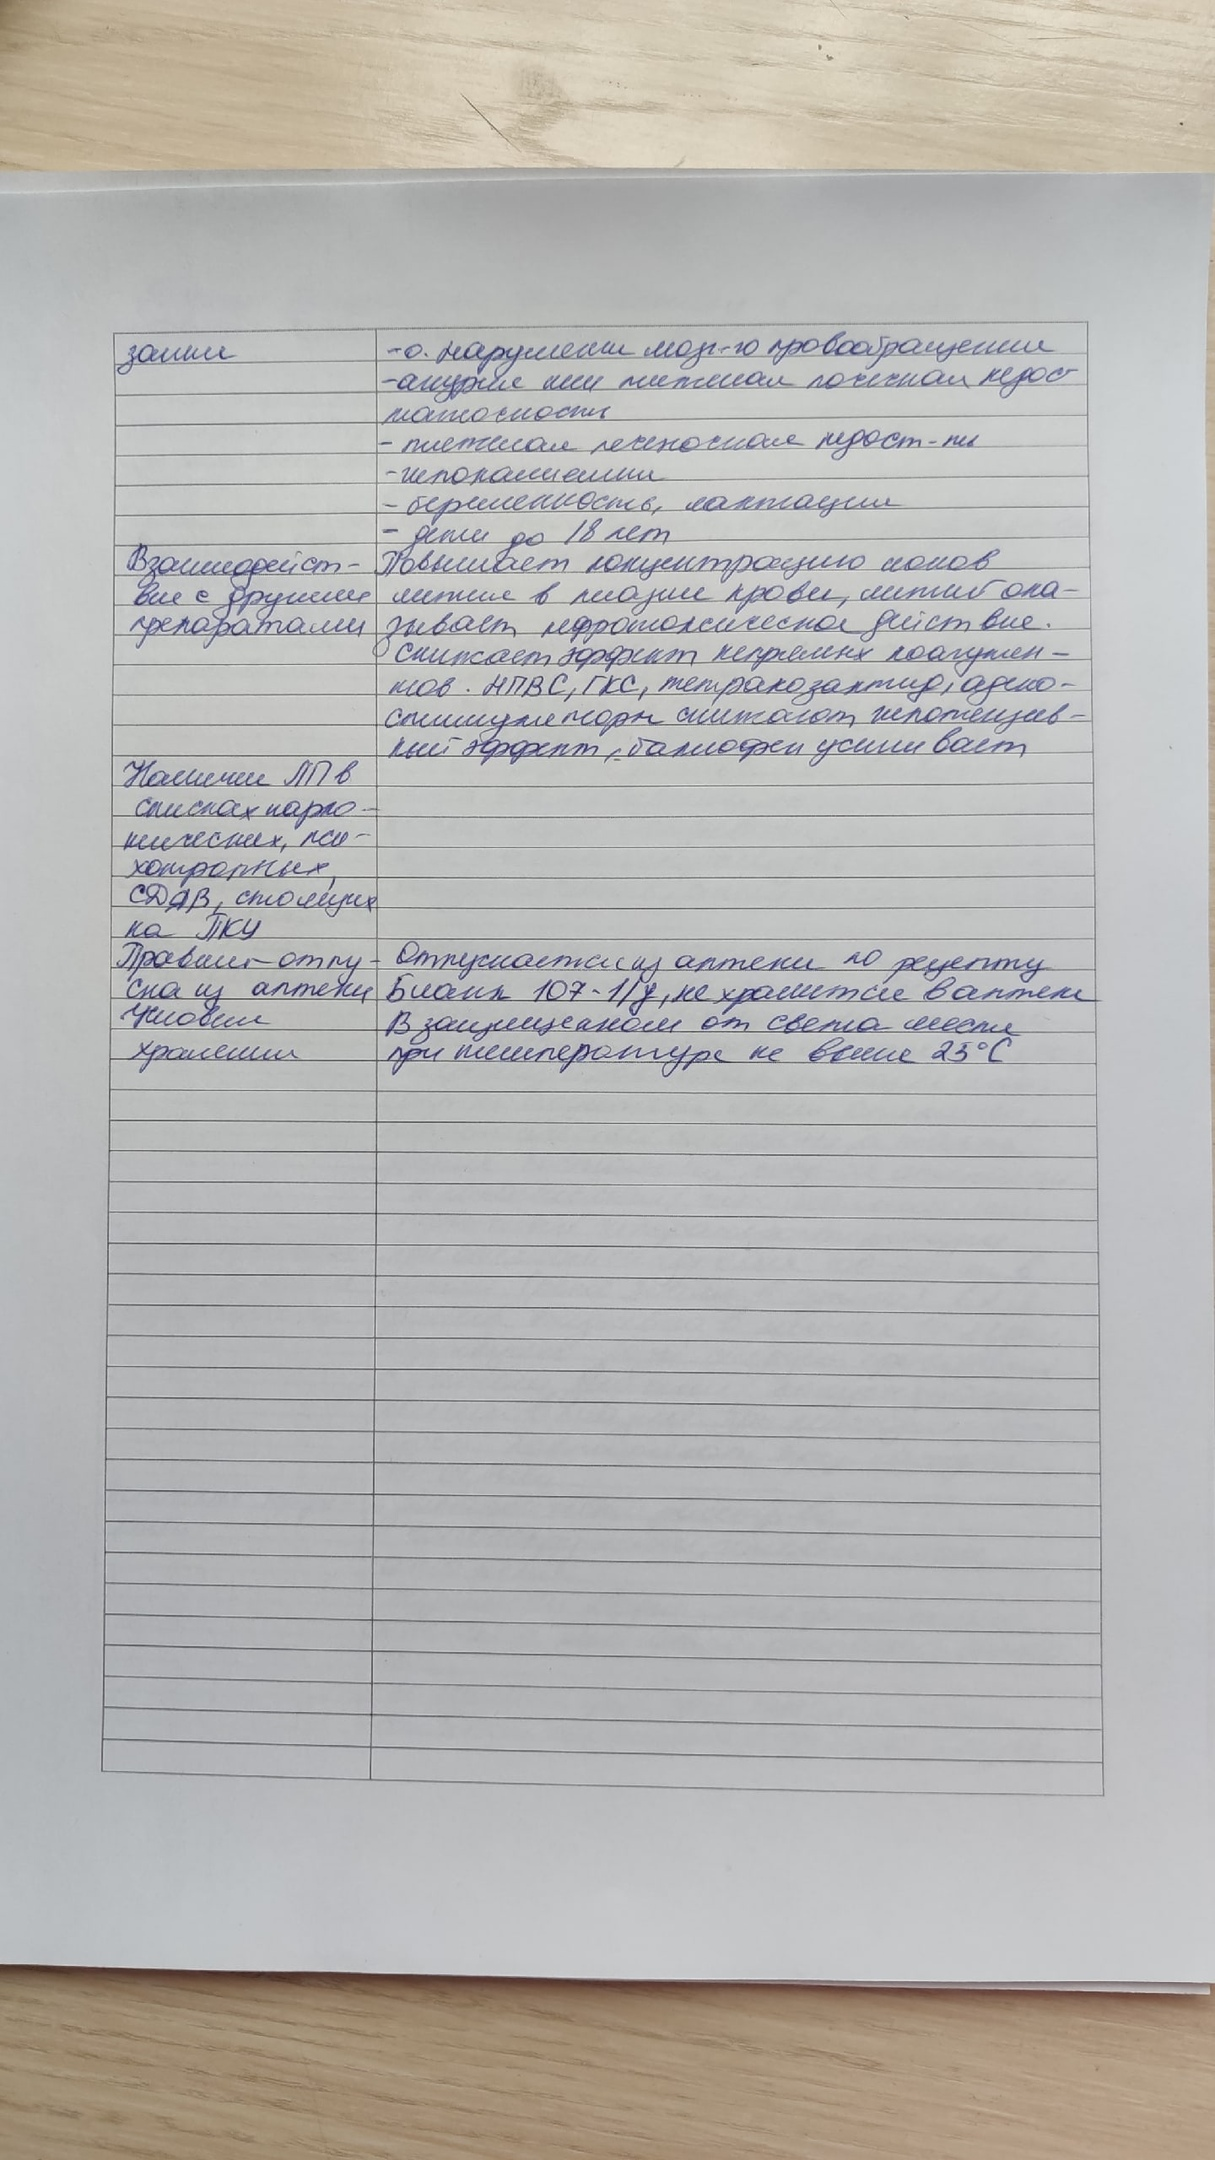 зания
-о. нарушении мозг-го кровообращения
-анурия или тяжелая почечная недос
таточности
- тяжелая печеночная недост-ти
-гипокалиемия
- беременность, лактация
- дети до 18 лет
Взаимодейст-
вие с другими
препаратами
Повышает концентрацию ионов
лития в плазме крови, литий ока-
зывает нефротоксическое действие.
Снижает эффект непрямых коагулян-
тов. НПВС, ГКС, тетракозактид, адено-
стимуляторы снижают гипотензив-
ный эффект, баклофен усиливает
Наличие ЛП в
списках нарко-
тических, пси-
хотропных,
СДЯВ, стоящих
на ПКУ
Правила отпу-
ска из аптеки
Отпускается из аптеки по рецепту
Бланк 107-1/у, не хранится в аптеке
Условия
хранения
В защищенном от света месте
при температуре не выше 25°С